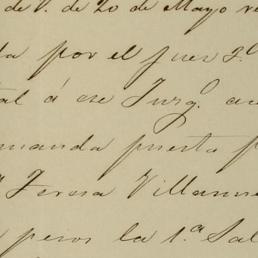 de 1. de 20 de Mayo
a por el juez 3º
tal á ese Juzg.
manda puesta p
Teresa Villanue
pesos la 1.ª Sal